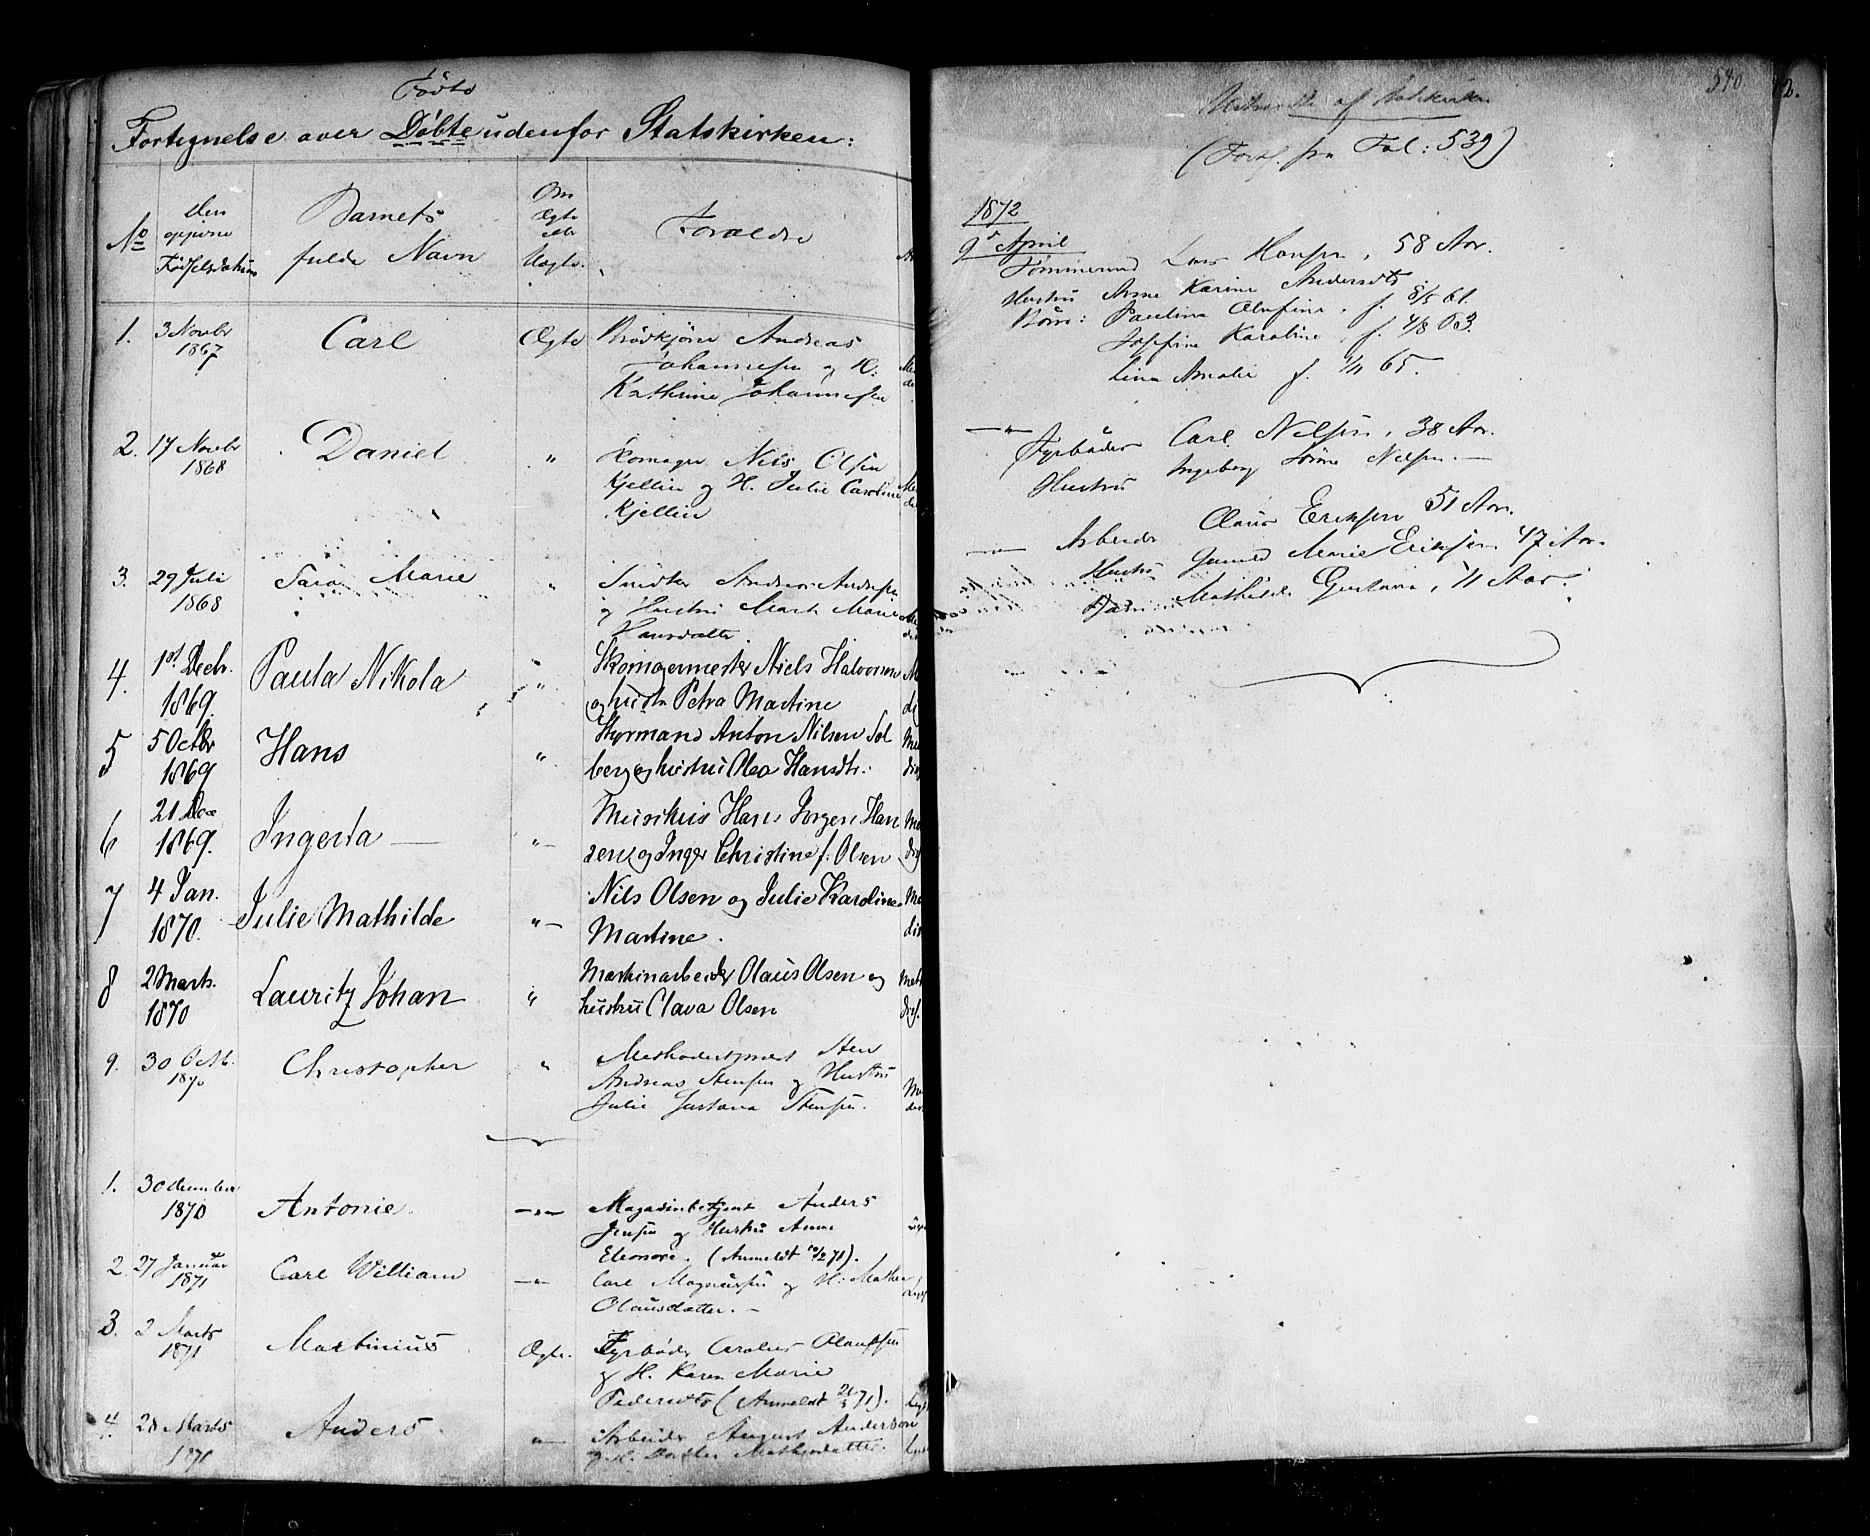 Fødte
Fortegnelse over Døbte udenfor Statskirken:
No
Den
opgivne
Fødselsdatum
Barnets
fulde Navn
Om
Ægte
eller
Uægte.
Forældre
1. 3 Novbr
1867
Carl
Ægte
Brødkjører Andreas
Johannesen og H:
Kathrine Johannesen
2. 17 Novbr
1868
Daniel
"
Skomager Nels Olsen
Kjellin og H. Julie Caroline
Kjellin
3. 29 Juli
1868
Sara Marie
"
Smidter Andreas Andersen
og Hustru Marte Marie
Hansdatter.
4. 1ste Decbr.
1869.
Paula Nikola
"
Skomagermester Niels Halvorsen
og hustru Petra Martine
5 5 Octbr
1869
Hans
"
Styrmand Anton Nilsen Sol
berg og hustru Olea Hansdtr.
6 21 Dec
1869.
Ingerda
"
Musikus Hans Jørgen Han
sen og Inger Christine f. Olsen
7 4 Jan.
1870.
Julie Mathilde
"
Nils Olsen og Julie Karoline
Martine.
8 2 Marts.
1870
Lauritz Johan
"
Maskinarbeider Olaus Olsen og
hustru Clava Olsen
9. 30 Octb.
1870
Christopher
"
Methodistprest Sten
Andreas Stensen og Hustru
Julie Gustava Stensen.
1. 30 December
1870
Antonie.
"
Magasinbetjent Anders
Jensen og Hustru Anne
Eleonore. (Anmeldt 10/2 71).
2. 27 Januar
1871
Carl William
"
Carl Magnussen og H: Mathea
Olausdatter.
3. 2 Marts
1871
Martinius
Ægte.
Fyrbøder Carolus Olaussen
og H. Karen Marie
Pedersdtr (Anmeldt 21/3 71).
4. 28 Marts
1871
Anders.
"
Arbeider August Anderson
og H. Dorthea Mathisdatter.
540
Udtraadte af Statskirken
(Forts. fra Fol: 539)
1872
9de April
Tømmermand Lars Hansen, 58 Aar.
Hustru Anne Karine Andersdtr
Børn: Pauline Olufine, f. 8/5 61.
Josefine Karoline, f. 4/8 63.
Lina Amalie f. 1/11 65.
" Fyrbøder Carl Nelsen, 38 Aar.
Hustru Ingeborg Sørine Nelsen.
" Arbeider Olaus Eriksen 51 Aar.
Hustru Gunild Marie Eriksen 47 Aar.
Barn Mathilde Gustava, 11 Aar.